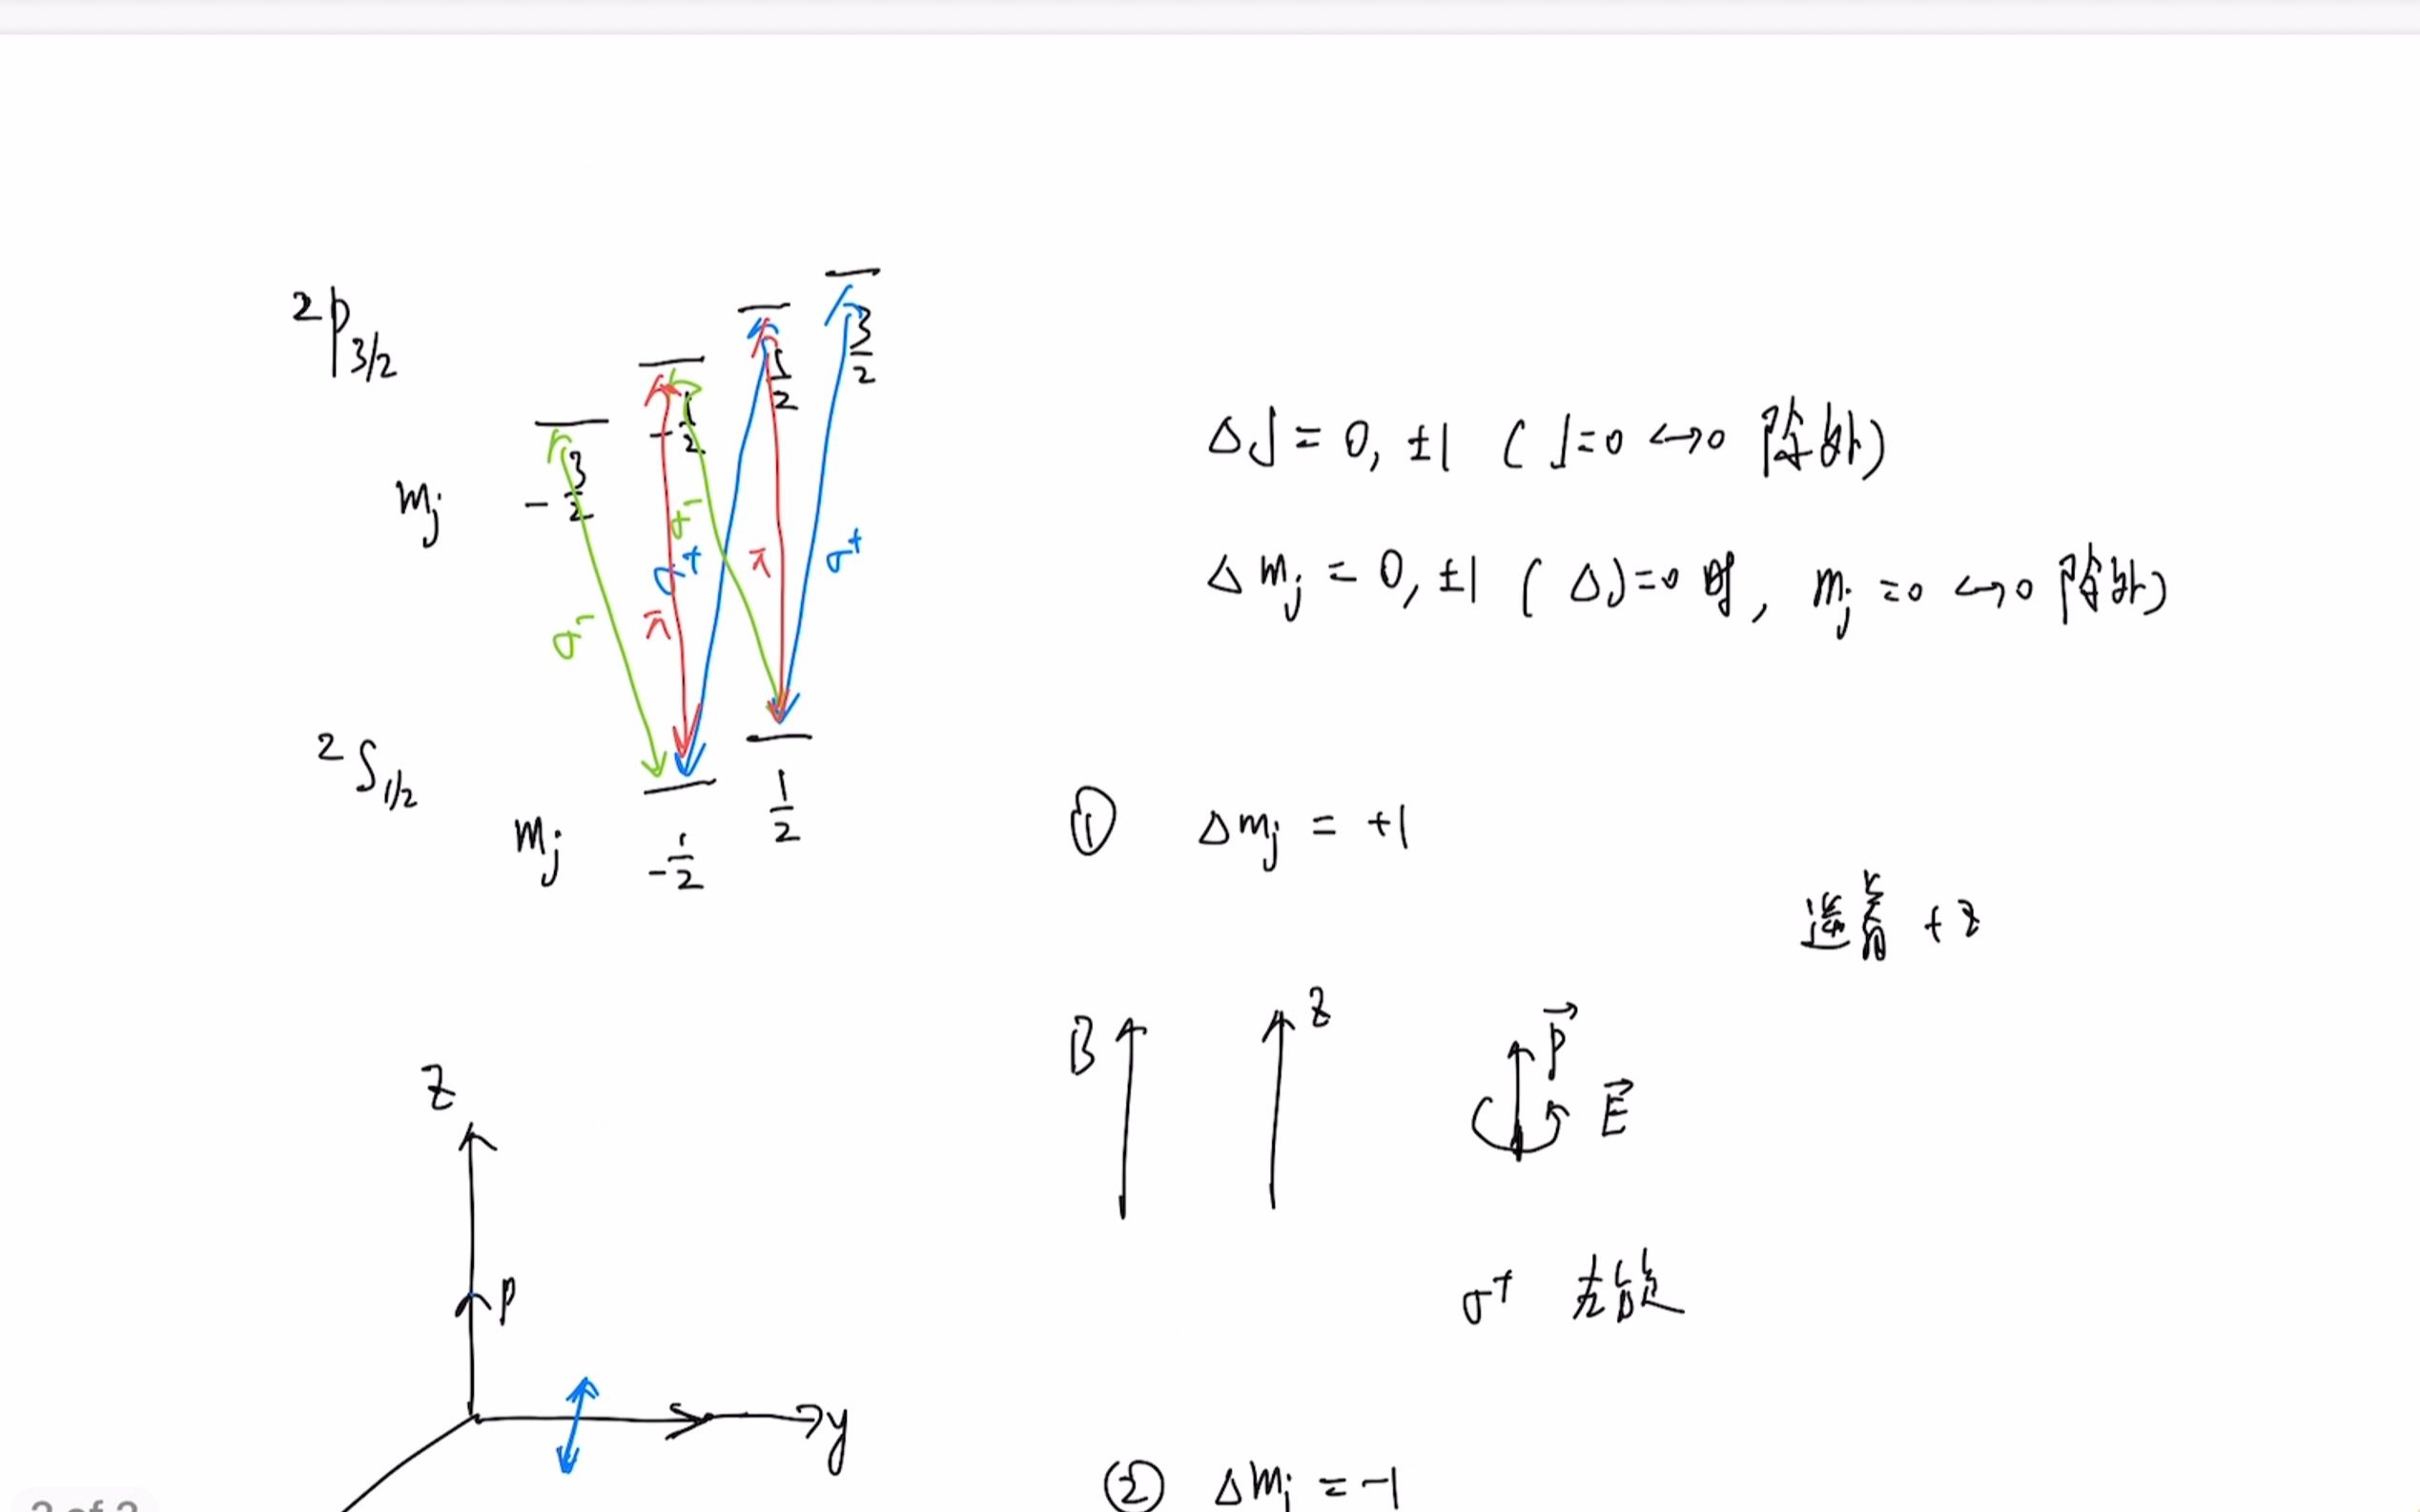 ²P₃/₂
3/2
1/2
-1/2
-3/2
mj
σ⁻
σ⁺
π
σ⁺
π
σ⁻
²S₁/₂
1/2
mj
-1/2
ΔJ = 0, ±1 ( J=0 ↔ 0 除外)
Δmj = 0, ±1 ( ΔJ=0 时, mj =0 ↔ 0 除外)
① Δmj = +1
迎着 +z
B
z
P⃗
E⃗
σ⁺ 左旋
z
P
y
② Δmj = -1